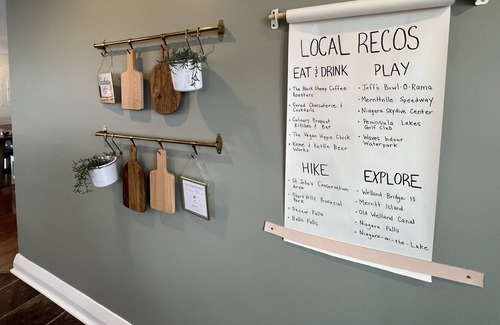 LOCAL RECOS
EAT & DRINK
• The Black Sheep Coffee
Roasters
• Cured Charcuterie &
Cocktails
• Culinary Dropout
Kitchen & Bar
• The Vegan Hippie Chick
• Rame & Kettle Beer
Works
PLAY
• Jeff's Bowl-O-Rama
• Merrittville Speedway
• Niagara Skydive Center
• Peninsula Lakes
Golf Club
• Waves Indoor
Waterpark
HIKE
• St. John's Conservation
Area
• Short Hills Provincial
Park
• Decew Falls
• Balls Falls
EXPLORE
• Welland Bridge 13
• Merritt Island
• Old Welland Canal
• Niagara Falls
• Niagara-on-the-Lake